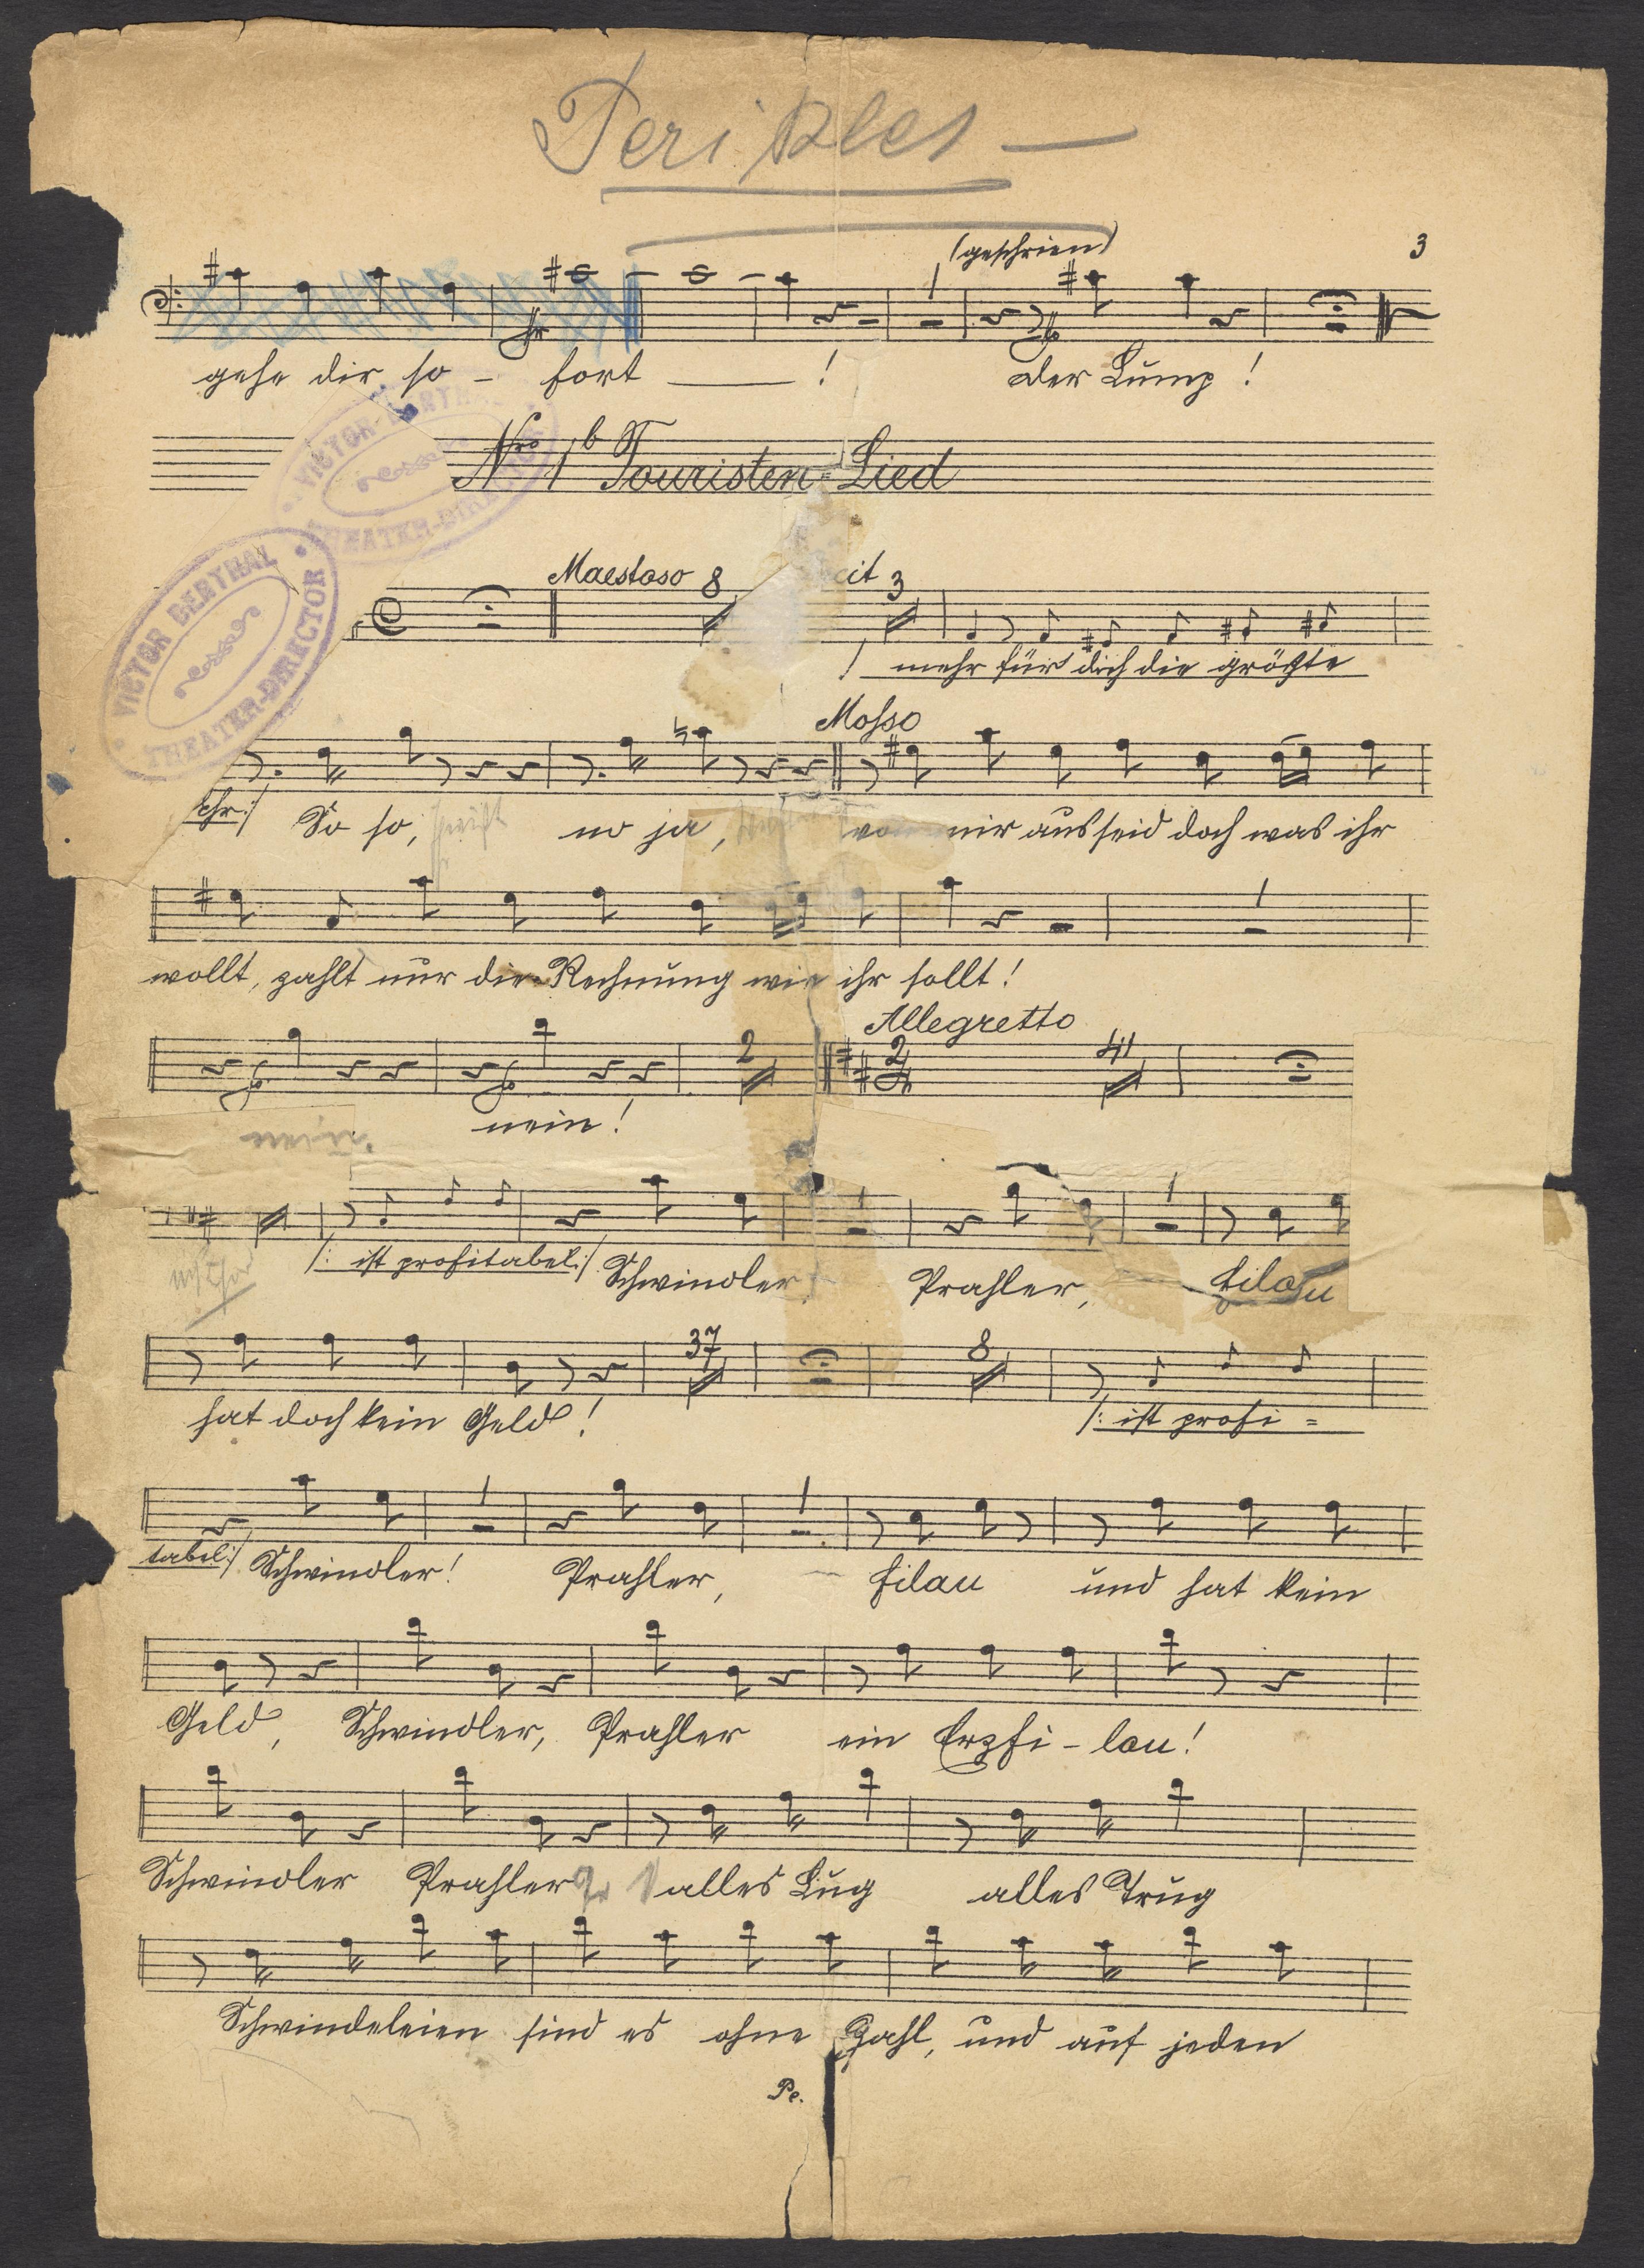 Perikles —
3
(geschrien)
gehe dir so - fort ___ ! der Lump !
VICTOR BERTHAL
THEATER-DIRECTOR
Nro 1b Touristen-Lied
VICTOR BERTHAL
THEATER-DIRECTOR
Maestoso 8 cit 3
/ mehr für dich die größte
Mosso
So so, no ja, von mir aus seid doch was ihr
wollt, zahlt nur die Rechnung wie ihr sollt!
Allegretto
2 2/4 41
nein!
/: ist profitabel :/ Schwindler, Prahler, filou
37 8
hat doch kein Geld! /: ist profi =
tabel :/ Schwindler! Prahler, filou und hat kein
Geld, Schwindler, Prahler ein Erzfi - lou!
Schwindler Prahler alles Lug alles Trug
Schwindeleien sind es ohne Zahl, und auf jeden
Pe.